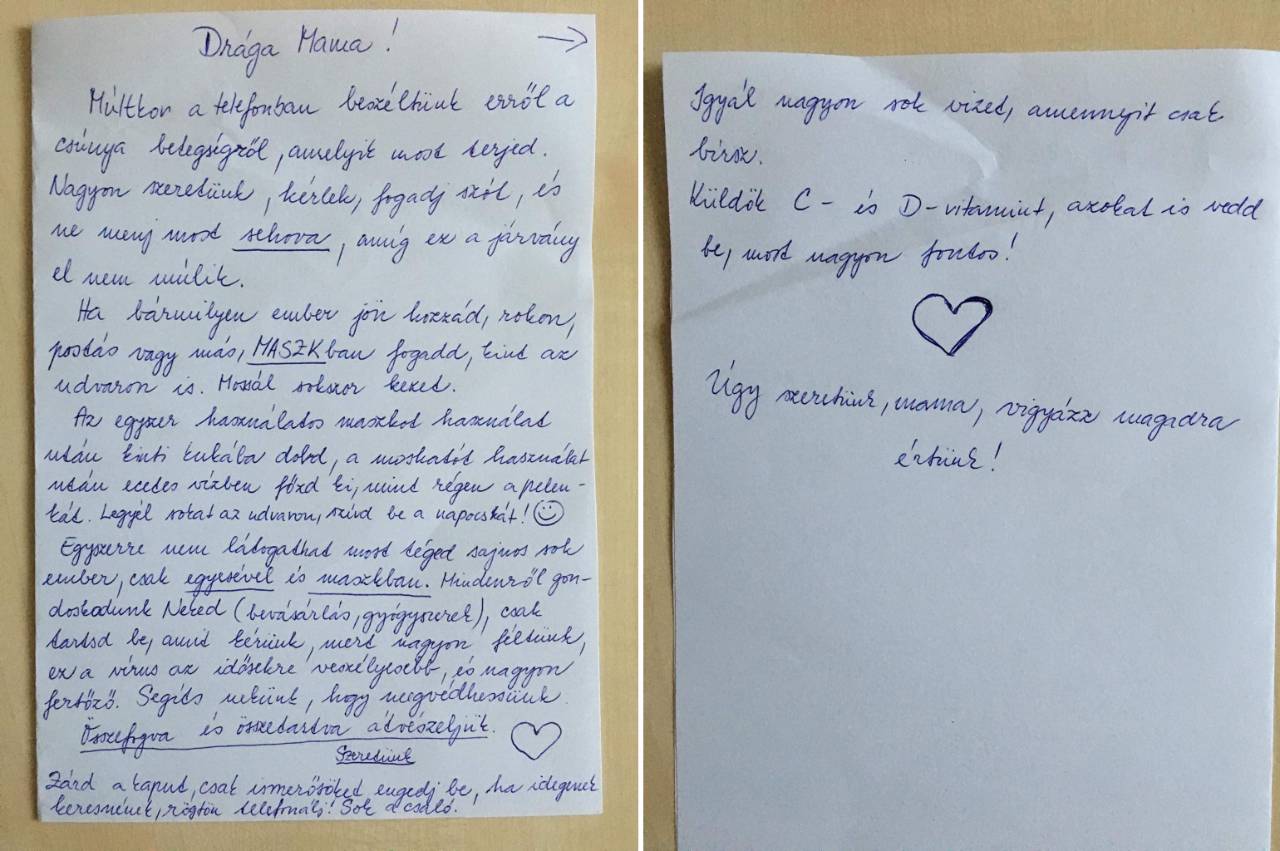 Drága Mama! →
Múltkor a telefonban beszéltünk erről a
csúnya betegségről, amelyik most terjed.
Nagyon szeretünk, kérlek, fogadj szót, és
ne menj most sehova, amíg ez a járvány
el nem múlik.
Ha bármilyen ember jön hozzád, rokon,
postás vagy más, MASZKban fogadd, kint az
udvaron is. Mossál sokszor kezet.
Az egyszer használatos maszkot használat
után kinti kukába dobd, a moshatót használat
után ecetes vízben főzd ki, mint régen a pelen-
kát. Legyél sokat az udvaron, szívd be a napocskát! ☺
Egyszerre nem látogathat most téged sajnos sok
ember, csak egyesével és maszkban. Mindenről gon-
doskodunk Neked (bevásárlás, gyógyszerek), csak
tartsd be, amit kérünk, mert nagyon féltünk,
ez a vírus az idősekre veszélyesebb, és nagyon
fertőző. Segíts nekünk, hogy megvédhessünk.
Összefogva és összetartva átvészeljük. ♡
Szeretünk
Zárd a kaput, csak ismerősöket engedj be, ha idegenek
keresnének, rögtön telefonálj! Sok a csaló.
Igyál nagyon sok vizet, amennyit csak
bírsz.
Küldök C- és D-vitamint, azokat is vedd
be, most nagyon fontos!
♡
Úgy szeretünk, mama, vigyázz magadra
értünk!